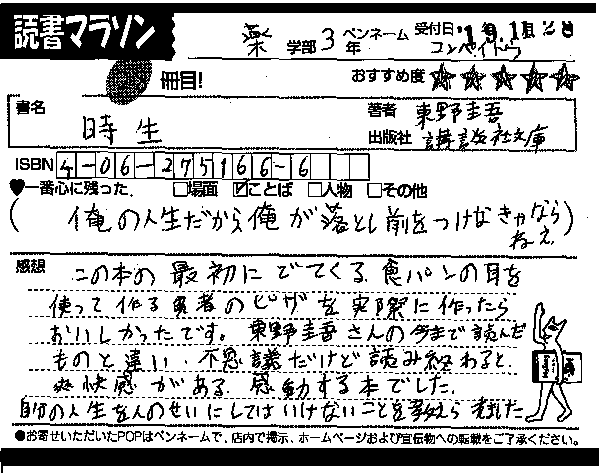 読書マラソン
薬 学部 3 年 ペンネーム コンペイトウ 受付日
冊目! おすすめ度
書名 時生
著者 東野圭吾
出版社 講談社文庫
ISBN 4-06-275166-6
♥一番心に残った. □場面 ☑ことば □人物 □その他
(俺の人生だから俺が落とし前をつけなきゃなら
ねえ)
感想 この本の最初にでてくる食パンの耳を
使って作る貧者のピザを実際に作ったら
おいしかったです。東野圭吾さんの今まで読んだ
ものと違い、不思議だけど読み終わると
爽快感がある、感動する本でした。
自分の人生を人のせいにしてはいけないことを教えられました
●お寄せいただいたPOPはペンネームで、店内で掲示、ホームページおよび宣伝物への転載をご了承ください。